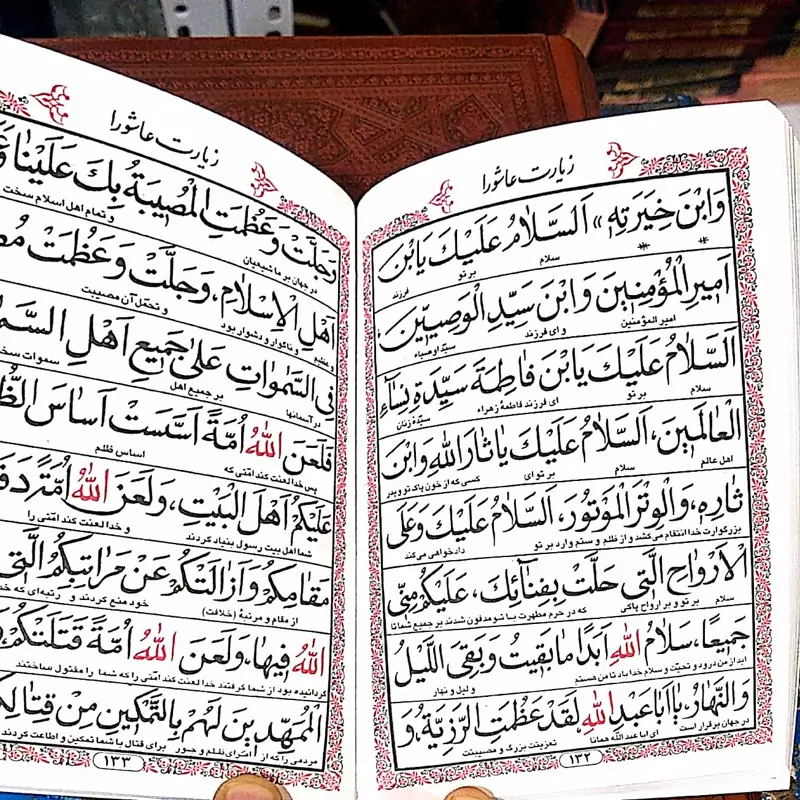 زیارت عاشورا
وَابْنَ خِيَرَتِهِ» اَلسَّلامُ عَلَيْكَ يَابْنَ
سلام بر تو فرزند
اَميرِ الْمُؤْمِنينَ وَابْنَ سَيِّدِ الْوَصِيّينَ،
امیر المؤمنین و ای فرزند سیّد اوصیاء
اَلسَّلامُ عَلَيْكَ يَابْنَ فاطِمَةَ سَيِّدَةِ نِساءِ
سلام بر تو ای فرزند فاطمهٔ زهراء سیّدهٔ زنان
الْعالَمينَ، اَلسَّلامُ عَلَيْكَ يا ثارَ اللهِ وَابْنَ
اهل عالم سلام بر تو ای کسی که از خون پاک تو و پدر
ثارِهِ، وَالْوِتْرَ الْمَوْتُورَ، اَلسَّلامُ عَلَيْكَ وَعَلَى
بزرگوارت خدا انتقام می‌کشد و از ظلم و ستم وارد بر تو دادخواهی می‌کند
الْاَرْواحِ الَّتي حَلَّتْ بِفِنائِكَ، عَلَيْكُمْ مِنّي
سلام بر تو و بر ارواح پاکی که در حرم مطهرت با تو مدفون شدند بر جمیع شما تا
جَميعًا، سَلامُ اللهِ اَبَدًا ما بَقيتُ وَبَقِيَ اللَّيْلُ
ابد از من درود و تحیّت و سلام خدا باد تا من هستم و لیل و نهار
وَالنَّهارُ، يا اَبا عَبْدِ اللهِ، لَقَدْ عَظُمَتِ الرَّزِيَّةُ، وَ
در جهان برقرار است ای ابا عبد الله همانا تعزیتت بزرگ و مصیبتت
١٣٢
زیارت عاشورا
وَجَلَّتْ وَعَظُمَتِ الْمُصيبَةُ بِكَ عَلَيْنا
در جهان بر ما شیعیان و تمام اهل اسلام سخت
اَهْلِ الْاِسْلامِ، وَجَلَّتْ وَعَظُمَتْ
و عظیم و ناگوار و دشوار بود و تحمّل آن مصیبت
فِي السَّمواتِ عَلى جَميعِ اَهْلِ
در آسمانها بر جمیع اهل سموات
فَلَعَنَ اللهُ اُمَّةً اَسَّسَتْ اَساسَ
پس خدا لعنت کند امّتی که اساس ظلم
عَلَيْكُمْ اَهْلَ الْبَيْتِ، وَلَعَنَ اللهُ اُمَّةً
شما اهل بیت رسول بنیاد کردند و خدا لعنت کند امّتی را
مَقامِكُمْ وَاَزالَتْكُمْ عَنْ مَراتِبِكُمُ الَّتي
از مقام و مرتبهٔ (خلافت) خود منع کردند و رتبه‌ای که
اللهُ فيها، وَلَعَنَ اللهُ اُمَّةً قَتَلَتْكُمْ،
گردانیده بود از شما گرفتند خدا لعنت کند امّتی را که شما را مقتول ساختند
الْمُمَهِّدينَ لَهُمْ بِالتَّمْكينِ مِنْ
مردمی را که از امرای ظلم و جور برای قتال با شما تمکین و اطاعت کردند
١٣٣